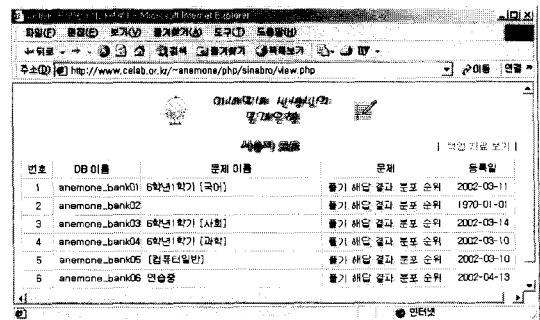 Microsoft Internet Explorer
파일(F) 편집(E) 보기(V) 즐겨찾기(A) 도구(T) 도움말(H)
뒤로 검색 즐겨찾기 목록보기
주소(D) http://www.celab.or.kr/~anemone/php/sinabro/view.php 이동 연결 »
[ 백업 자료 보기 ]
번호 DB 이름 문제 이름 문제 등록일
1 anemone_bank01 6학년1학기 [국어] 풀기 해답 결과 분포 순위 2002-03-11
2 anemone_bank02 1970-01-01
3 anemone_bank03 6학년1학기 [사회] 풀기 해답 결과 분포 순위 2002-03-14
4 anemone_bank04 6학년1학기 [과학] 풀기 해답 결과 분포 순위 2002-03-10
5 anemone_bank05 [컴퓨터일반] 풀기 해답 결과 분포 순위 2002-03-10
6 anemone_bank06 연습중 풀기 해답 결과 분포 순위 2002-04-13
인터넷